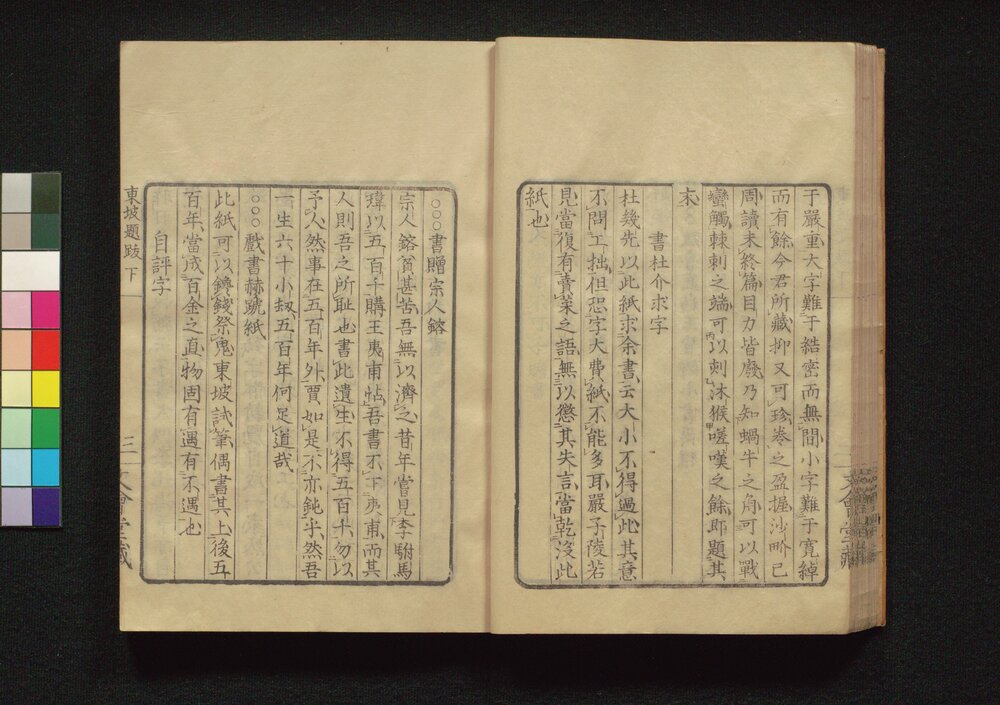 于嚴重大字難于結密而無間小字難于寬綽
而有餘今君所藏抑又可珍卷之盈握沙界已
周讀未終篇目力皆廢乃知蝸牛之角可以戰
蠻觸棘刺之端可以刺沐猴嗟嘆之餘郎題其
末
書杜介求字
杜幾先以此紙求余書云大小不得過此其意
不問工拙但恐字大費紙不能多耳嚴子陵若
見當復有賣菜之語無以懲其失言當乾沒此
紙也
文會堂藏
○○○書贈宗人鎔
宗人鎔貧甚苦吾無以濟之昔年嘗見李駙馬
瑋以五百千購王夷甫帖吾書不下夷甫而其
人則吾之所耻也書此遺生不得五百千勿以
予人然事在五百年外賈如是不亦鈍乎然吾
一生六十小劫五百年何足道哉
○○○戲書赫蹏紙
此紙可以鑱錢祭鬼東坡試筆偶書其上後五
百年當成百金之直物固有遇有不遇也
自評字
東坡題跋 下
三
文會堂藏